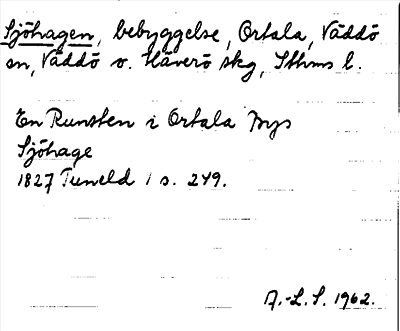 Sjöhagen, bebyggelse, Ortala, Väddö
sn, Väddö o. Häverö skg, Sthms l.
En Runsten i Ortala Bys
Sjöhage
1827 Tuneld 1 s. 249.
A.-L.S. 1962.